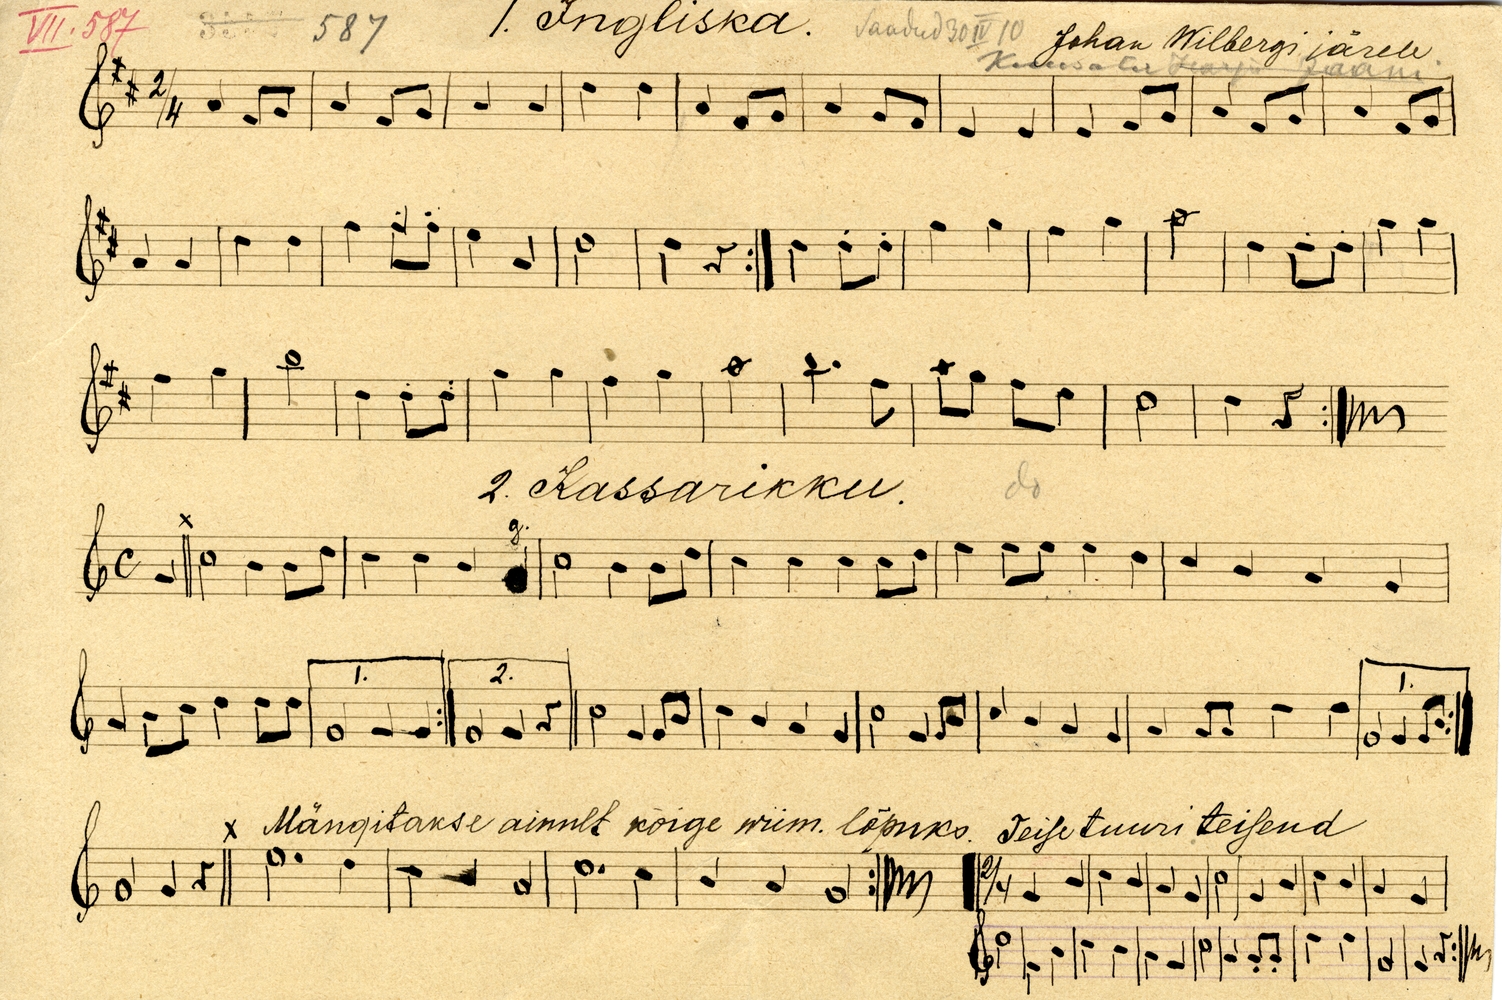 VII. 587 587 1. Ingliska. Saadud 30 IV 10
Johan Wilbergi järele
Jaani
2. Kassarikku. do
g.
1. 2. 1.
Mängitakse ainult kõige wiim. lõpuks. Teise tuuri teisend